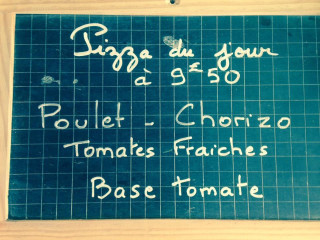 Pizza du jour
à 9€50
Poulet - Chorizo
Tomates Fraîches
Base tomate